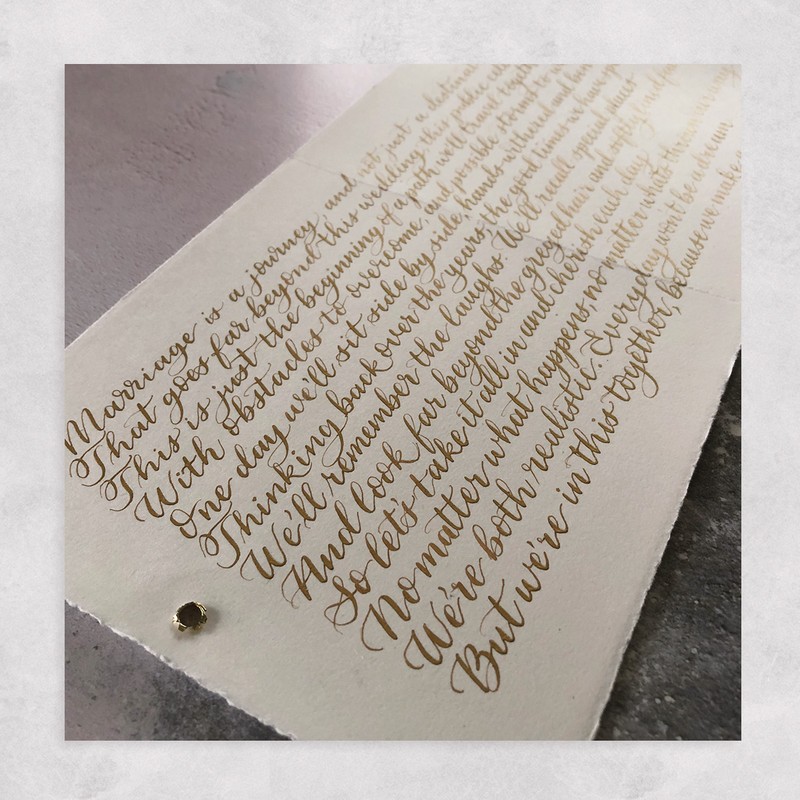 Marriage is a journey and not just a destination
That goes far beyond this wedding, this public
This is just the beginning of a path we'll travel together
With obstacles to overcome, and possible storms to
One day we'll sit side by side, hands withered and
Thinking back over the years, the good times we have
We'll remember the laughs. We'll recall special places
And look far beyond the greyed hair and softly lined
So let's take it all in and cherish each day
No matter what happens, no matter what's thrown in
We're both realistic. Everyday won't be a dream
But we're in this together, because we make a